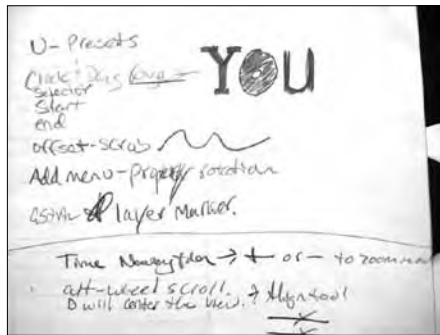 U-Presets
YOU
Click + Drag
Selector
Start
end
offset-scrub
Add menu-property rotation
layer marker.
Time Navigator → + or - to zoom
alt-wheel scroll.
D will center the view. → Align tool